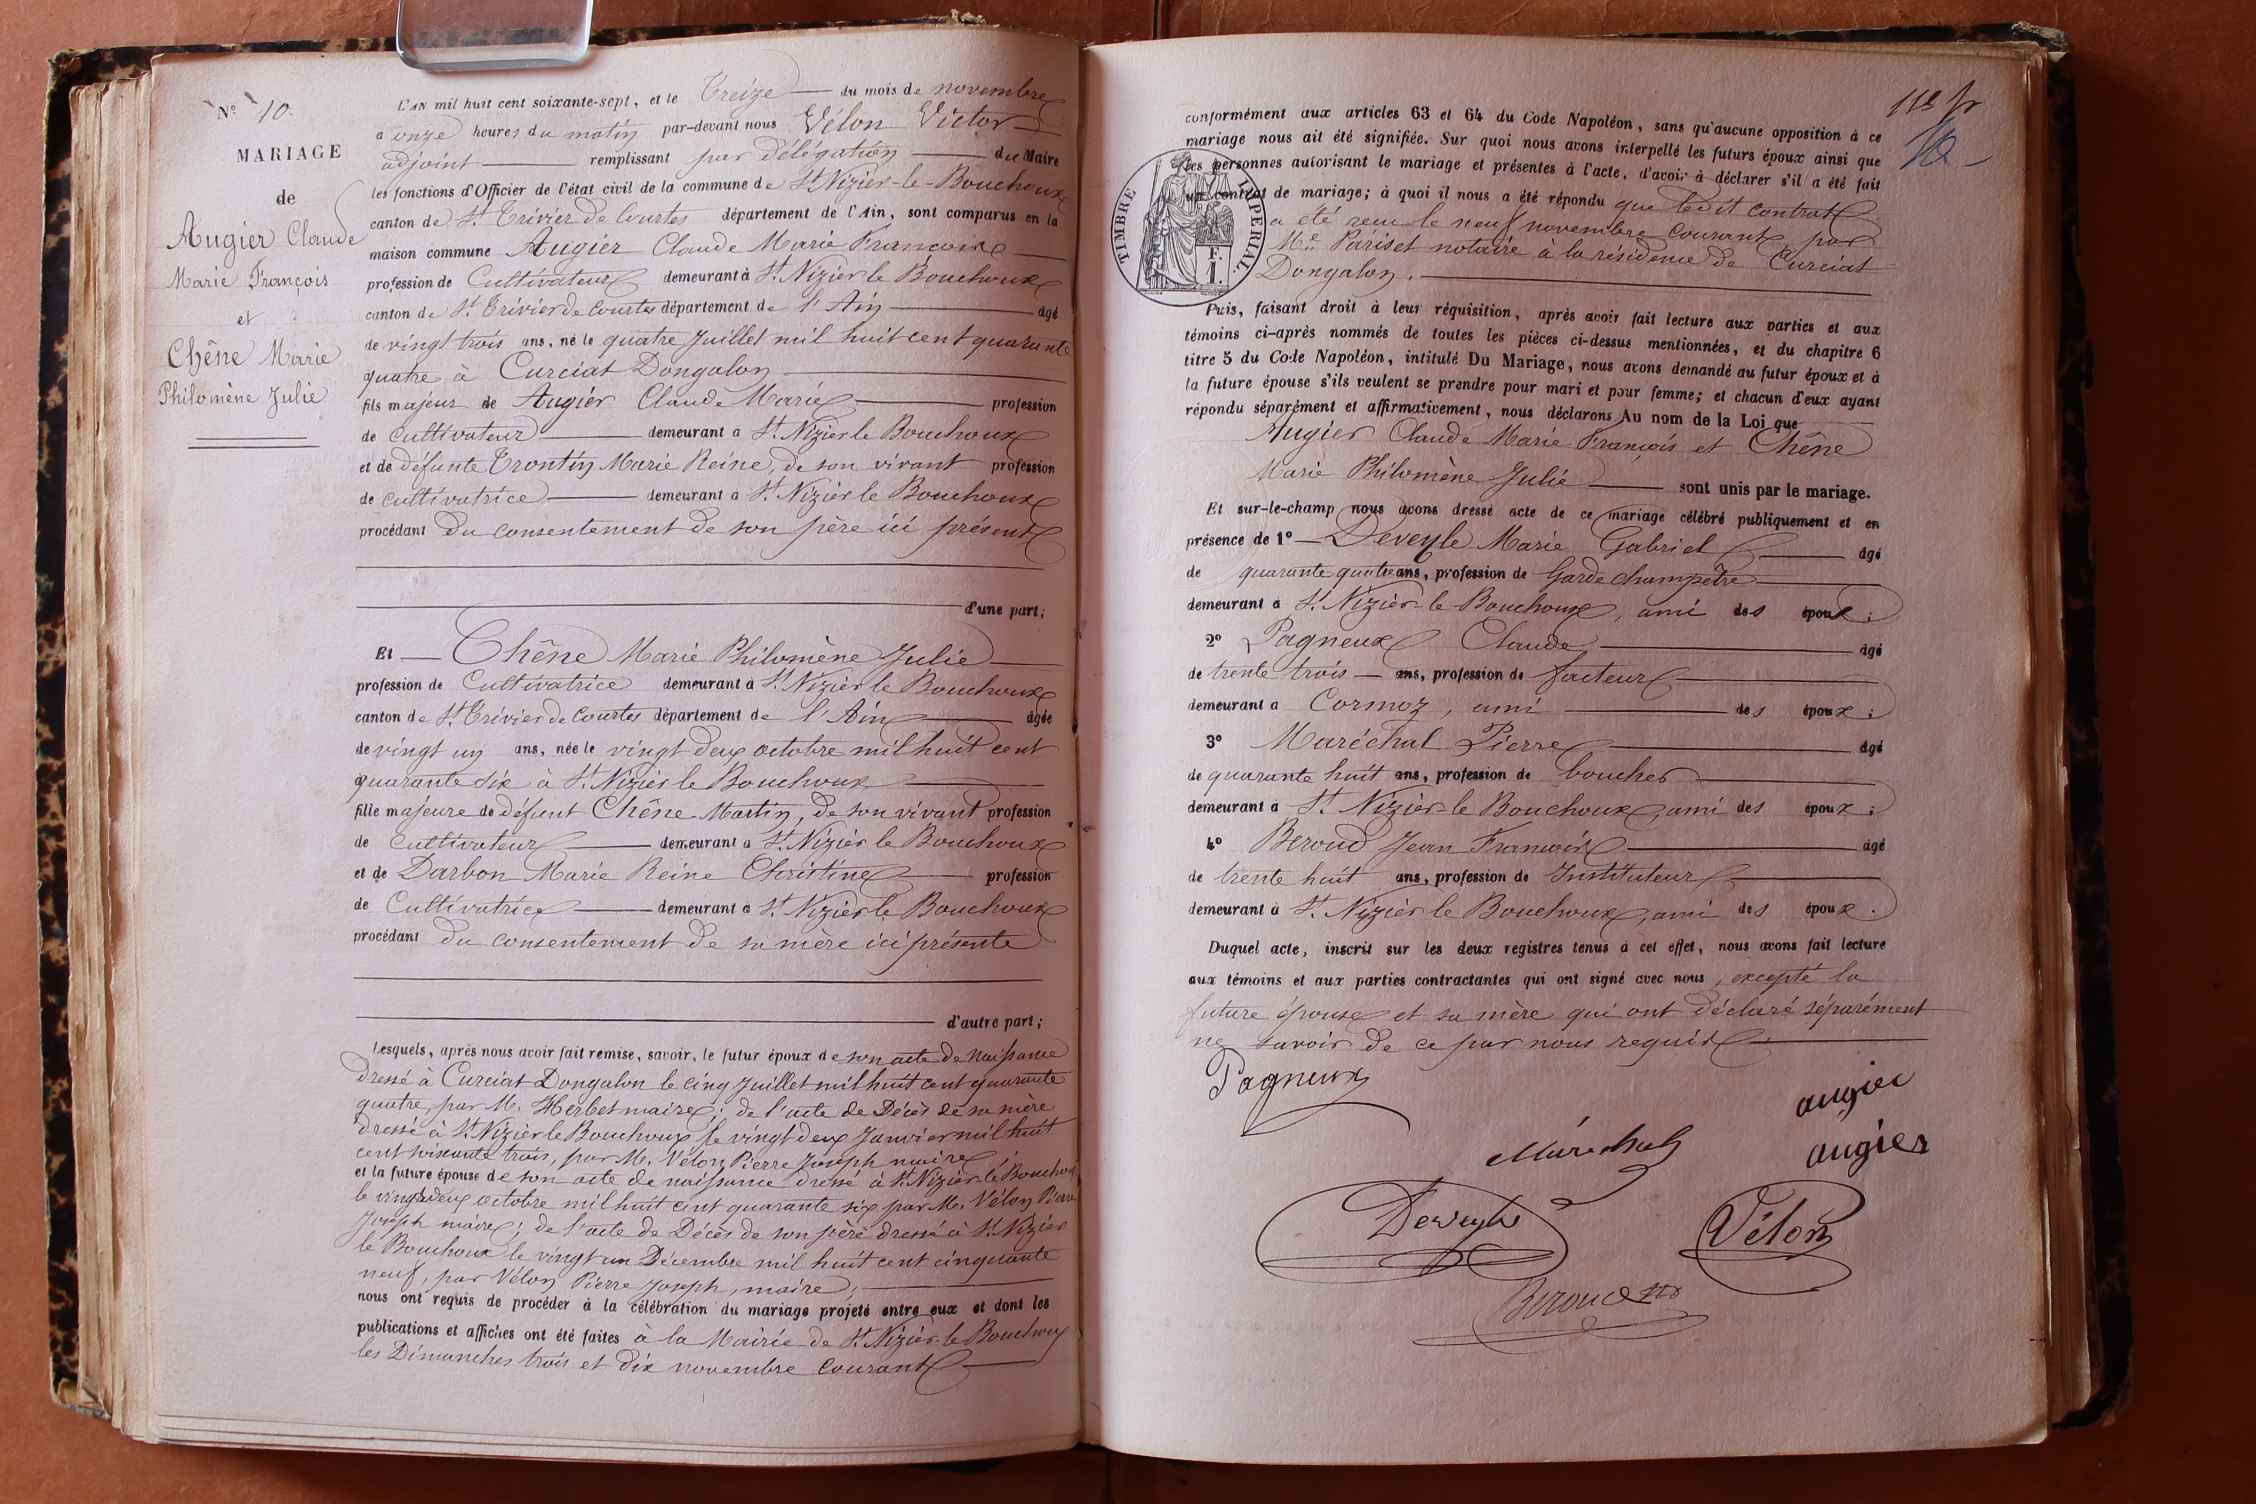 N° 10.
MARIAGE
de
Augier Claude
Marie François
et
Chêne Marie
Philomène Julie
L'AN mil huit cent soixante-sept, et le Treize du mois de novembre
a onze heures du matin par-devant nous Vélon Victor
adjoint remplissant par délégation du Maire
les fonctions d'Officier de l'état civil de la commune de St Nizier-le-Bouchoux
canton de St Trivier de Courtes département de l'Ain, sont comparus en la
maison commune Augier Claude Marie François
profession de Cultivateur demeurant à St Nizier le Bouchoux
canton de St Trivier de Courtes département de l'Ain âgé
de vingt trois ans, né le quatre Juillet mil huit cent quarante
quatre à Curciat Dongalon
fils majeur de Augier Claude Marie profession
de cultivateur demeurant à St Nizier le Bouchoux
et de défunte Trontin Marie Reine, de son vivant profession
de cultivatrice demeurant à St Nizier le Bouchoux
procédant du consentement de son père ici présent
d'une part;
Et Chêne Marie Philomène Julie
profession de Cultivatrice demeurant à St Nizier le Bouchoux
canton de St Trivier de Courtes département de l'Ain âgée
de vingt un ans, née le vingt deux octobre mil huit cent
quarante six à St Nizier le Bouchoux
fille majeure de défunt Chêne Martin, de son vivant profession
de cultivateur demeurant à St Nizier le Bouchoux
et de Darbon Marie Reine Christine profession
de Cultivatrice demeurant à St Nizier le Bouchoux
procédant du consentement de sa mère ici présente
d'autre part;
Lesquels, après nous avoir fait remise, savoir, le futur époux de son acte de Naissance
dressé à Curciat Dongalon le cinq Juillet mil huit cent quarante
quatre, par M. Herbet maire; de l'acte de Décès de sa mère
dressé à St Nizier le Bouchoux le vingt deux Janvier mil huit
cent soixante trois, par M. Vélon Pierre Joseph maire;
et la future épouse de son acte de naissance dressé à St Nizier le Bouchoux
le vingt deux octobre mil huit cent quarante six par M. Vélon Pierre
Joseph maire; de l'acte de Décès de son père dressé à St Nizier
le Bouchoux le vingt un Décembre mil huit cent cinquante
neuf, par Vélon Pierre Joseph, maire;
nous ont requis de procéder à la célébration du mariage projeté entre eux et dont les
publications et affiches ont été faites à la Mairie de St Nizier-le-Bouchoux
les Dimanches trois et dix novembre courant
118 fr
TIMBRE IMPÉRIAL.
F.
1.
conformément aux articles 63 et 64 du Code Napoléon, sans qu'aucune opposition à ce
mariage nous ait été signifiée. Sur quoi nous avons interpellé les futurs époux ainsi que
les personnes autorisant le mariage et présentes à l'acte, d'avoir à déclarer s'il a été fait
un contrat de mariage; à quoi il nous a été répondu que ledit contrat
a été reçu le neuf novembre courant par
Me Pariset notaire à la résidence de Curciat
Dongalon.
Puis, faisant droit à leur réquisition, après avoir fait lecture aux parties et aux
témoins ci-après nommés de toutes les pièces ci-dessus mentionnées, et du chapitre 6
titre 5 du Code Napoléon, intitulé Du Mariage, nous avons demandé au futur époux et à
la future épouse s'ils veulent se prendre pour mari et pour femme; et chacun d'eux ayant
répondu séparément et affirmativement, nous déclarons Au nom de la Loi que
Augier Claude Marie François et Chêne
Marie Philomène Julie sont unis par le mariage.
Et sur-le-champ nous avons dressé acte de ce mariage célébré publiquement et en
présence de 1° Deveyle Marie Gabriel âgé
de quarante quatre ans, profession de Garde champêtre
demeurant à St Nizier-le-Bouchoux, ami des époux;
2° Pagneux Claude âgé
de trente trois ans, profession de facteur
demeurant à Cormoz, ami des époux;
3° Maréchal Pierre âgé
de quarante huit ans, profession de boucher
demeurant à St Nizier-le-Bouchoux, ami des époux;
4° Beroud Jean François âgé
de trente huit ans, profession de Instituteur
demeurant à St Nizier le Bouchoux, ami des époux.
Duquel acte, inscrit sur les deux registres tenus à cet effet, nous avons fait lecture
aux témoins et aux parties contractantes qui ont signé avec nous, excepté la
future épouse et sa mère qui ont déclaré séparément
ne savoir de ce par nous requis
Pagneux
augier
Maréchal
augier
Deveyle
Vélon
Beroud